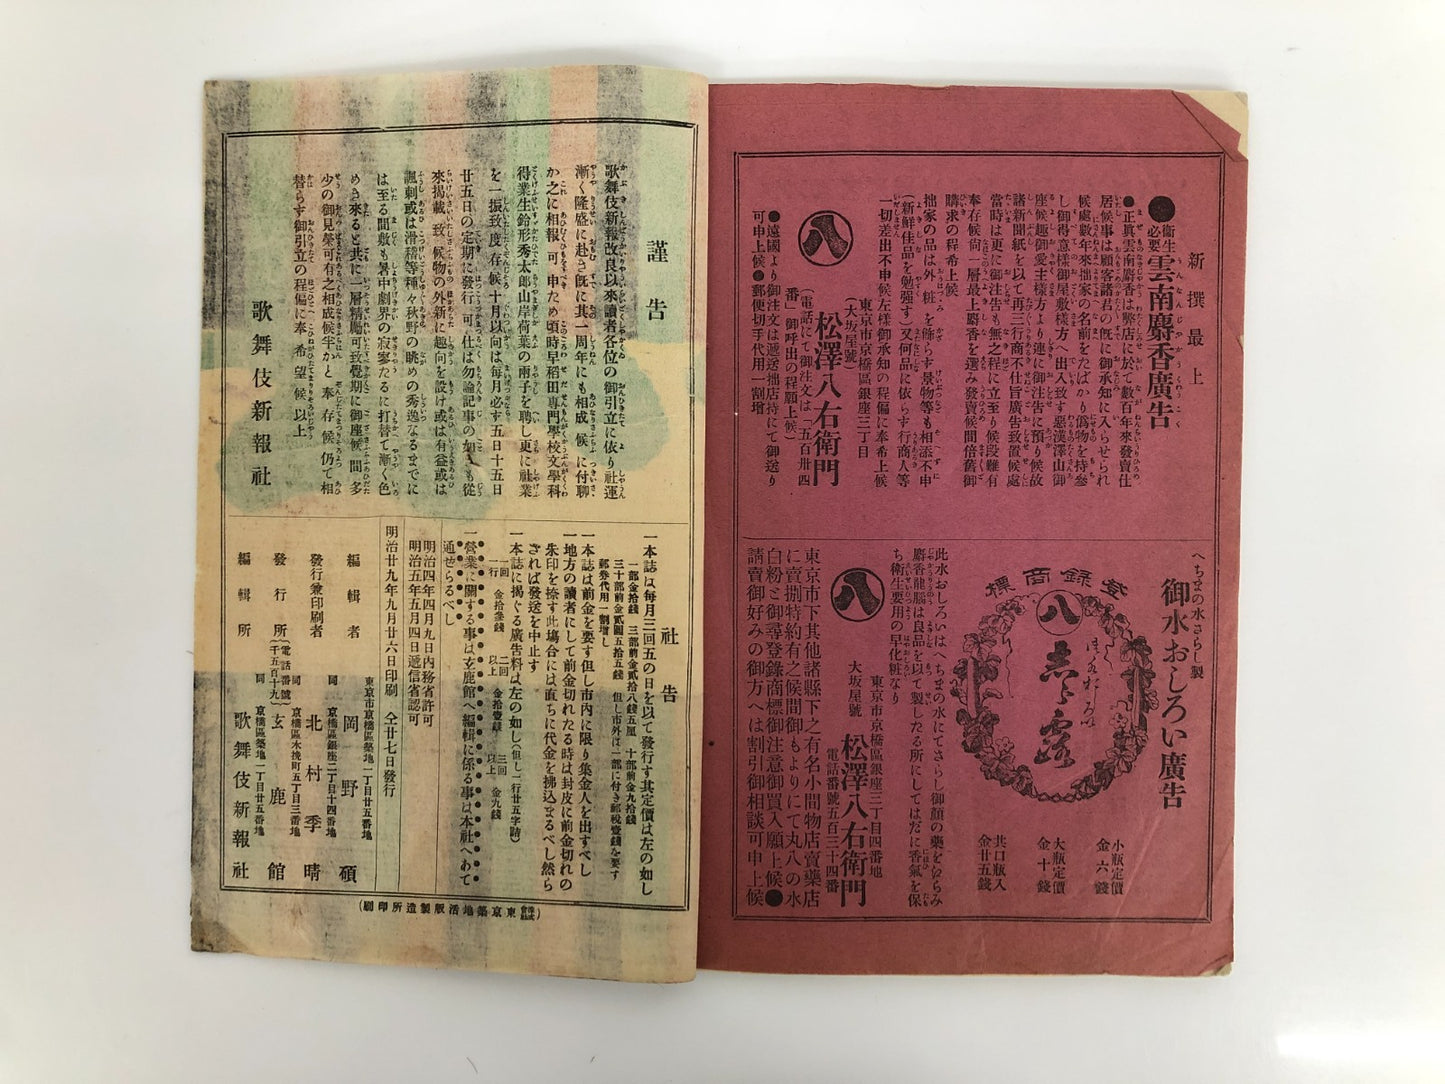 新撰最上
●衞生必要雲南麝香廣告
●正眞雲南麝香は弊店に於て數百年來發賣仕
居候事は顧客諸君の既に御承知に入らせられ
候處數年來拙家の名前をたばかり僞物を持參
し御得意樣御屋敷樣方へ出入致す惡漢澤山御
座候趣御愛主樣方より連に御注告に預り候故
諸新聞紙を以て再三行商不仕旨廣告致置候處
當時は更に御注告も無之程に立至り候段難有
奉存候尙一層最上麝香を選み發賣候間倍舊御
購求の程希上候
拙家の品は外粧を餝らす景物等も相添不申
(新鮮佳品を勉强す)又何品に依らす行商人等
一切差出不申候左樣御承知の程偏に奉希上候
東京市京橋區銀座三丁目
(大坂屋號)
八 松澤八右衛門
(電話にて御注文は「五百卅四
番」御呼出の程願上候)
●遠國より御注文は遞送拙店持にて御送り
可申上候●郵便切手代用一割增
へちまの水さらし製
御水おしろい廣告
登錄商標
八
小瓶定價
金六錢
大瓶定價
金十錢
共口瓶入
金廿五錢
此水おしろいはへちまの水にてさらし御顏の藥をくらみ
麝香龍腦は良品を以て製したる所にしてはだに香氣を保
ち衛生要用の早化粧なり
東京市京橋區銀座三丁目四番地
大坂屋號
八 松澤八右衛門
電話番號五百三十四番
東京市下其他諸縣下之有名小間物店賣藥店
に賣捌特約有之候間御もよりにて丸八の水
白粉と御尋登錄商標御注意御買入願上候●
請賣御好みの御方へは割引御相談可申上候
謹告
歌舞伎新報改良以來讀者各位の御引立に依り社運
漸く隆盛に赴き既に其一周年にも相成候に付聊
か之に相報可申ため頃時早稻田專門學校文學科
得業生鈴形秀太郎山岸荷葉の兩子を聘し更に社業
を一振致度存候十月以向は每月必す五日十五日
廿五日の定期に發行可仕は勿論記事の如くも從
來揭載致候物の外新に趣向を設け或は有益或は
諷刺或は滑稽等種々秋野の眺めの秀逸なるまでに
は至る間敷も暑中劇界の寂寥たるに打替て漸く色
めき來ると共に一層精勵可致覺期に御座候間多
少の御見榮可有之相成候半かと奉存候仍て相
替らす御引立の程偏に奉希望候以上
歌舞伎新報社
社告
一本誌は每月三回五の日を以て發行す其定價は左の如し
一部金拾錢 三部前金貳拾八錢五厘 十部前金九拾錢
三十部前金貳圓五拾五錢 但し市外は一部に付き郵稅壹錢を要す
郵券代用一割增し
一本誌は前金を要す但し市內に限り集金人を出すべし
一地方の讀者にして前金切れたる時は封皮に前金切れの
朱印を捺す此塲合には直ちに代金を拂込まるべし然ら
ざれば發送を中止す
一本誌に揭ぐる廣告料は左の如し(但し一行廿五字詰)
一回 二回 三回
一行 金拾參錢 以上 金拾壹錢 以上 金九錢
一營業に關する事は玄鹿館へ編輯に係る事は本社へあて
通ぜらるべし
明治四年四月九日內務省許可
明治五年五月四日遞信省認可
明治廿九年九月廿六日印刷 仝廿七日發行
東京市京橋區築地一丁目廿五番地
編輯者 岡野碩
同 京橋區銀座二丁目十四番地
發行兼印刷者 北村季晴
同 京橋區木挽町五丁目三番地
發行所 (電話番號千五百十九) 玄鹿館
同 京橋區築地一丁目廿五番地
編輯所 歌舞伎新報社
(株式會社東京築地活版製造所印刷)